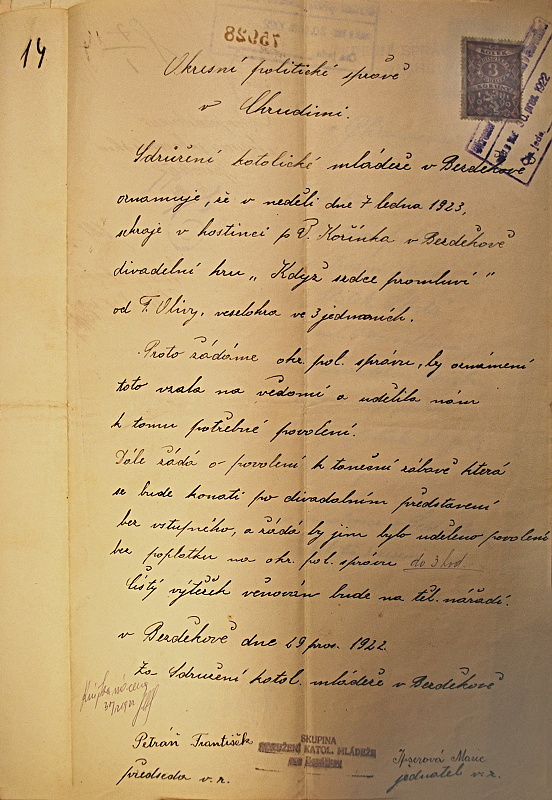 14
75028
Okresní politické správě
v Chrudimi.
Sdružení katolické mládeže v Bezděkově
oznamuje, že v neděli dne 7 ledna 1923,
sehraje v hostinci p. Kořínka v Bezděkově
divadelní hru „Když srdce promluví“
od F. Olivy, veselohra ve 3 jednáních.
Proto žádáme okr. pol. správu, by oznámení
toto vzala na vědomí a udělila nám
k tomu potřebné povolení.
Dále žádá o povolení k taneční zábavě která
se bude konati po divadelním představení
bez vstupného, a žádá by jim bylo uděleno povolení
bez poplatku na okr. pol. správu do 3 hod.
Čistý výtěžek věnován bude na těl. nářadí.
v Bezděkově dne 29 pros. 1922.
Za Sdružení katol. mládeže v Bezděkově
Petráň František
předseda v. r.
SKUPINA
SDRUŽENÍ KATOL. MLÁDEŽE
Marie
jednatel v. r.